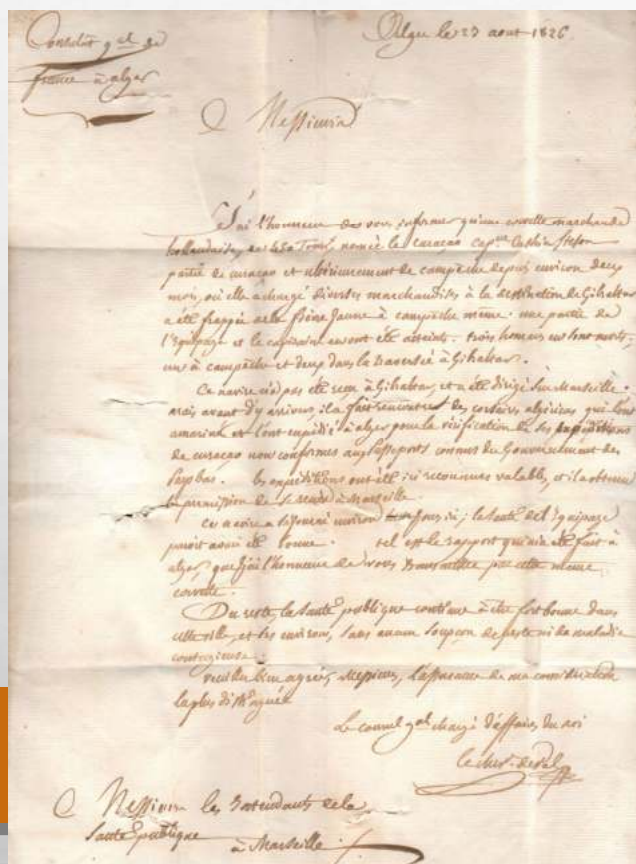 Consulat gal de
france à alger
Alger le 23 aout 1826
Messieurs
J'ai l'honneur de vous informer qu'une corvette marchande
hollandaise, de 450 Tonx nommée le curaçao capne
partie de curaçao et ultérieurement de campêche depuis environ deux
mois, où elle a chargé diverses marchandises à la destination de Gibraltar
a été frappée de la fièvre Jaune à campêche même. une partie de
l'Equipage et le capitaine en ont été atteints. trois hommes en sont morts,
un à campêche et deux dans la traversée à Gibraltar.
Ce navire n'a pas été reçu à Gibraltar, et a été dirigé sur Marseille.
mais avant d'y arriver, il a fait rencontre des corsaires algériens qui l'ont
amariné et l'ont expédié à alger pour la vérification de ses expéditions
de curaçao non conformes aux Passeports connus du Gouvernement des
Pays bas. les expéditions ont été ici reconnues valables, et il a obtenu
la permission de se rendre à Marseille.
ce navire a séjourné environ jours ici; la santé de l'équipage
parait avoir été bonne. tel est le rapport qui m'a été fait à
alger, que j'ai l'honneur de vous transmettre par cette même
corvette.
Du reste, la santé publique continue à être fort bonne dans
cette ville, et ses environs, sans aucun soupçon de peste ni de maladie
contagieuse.
veuillez bien agréer, Messieurs, l'assurance de ma considération
la plus distinguée
Le consul gal chargé d'affaires du roi
le chev. deval
Messieurs les Intendants de la
Santé publique
à Marseille